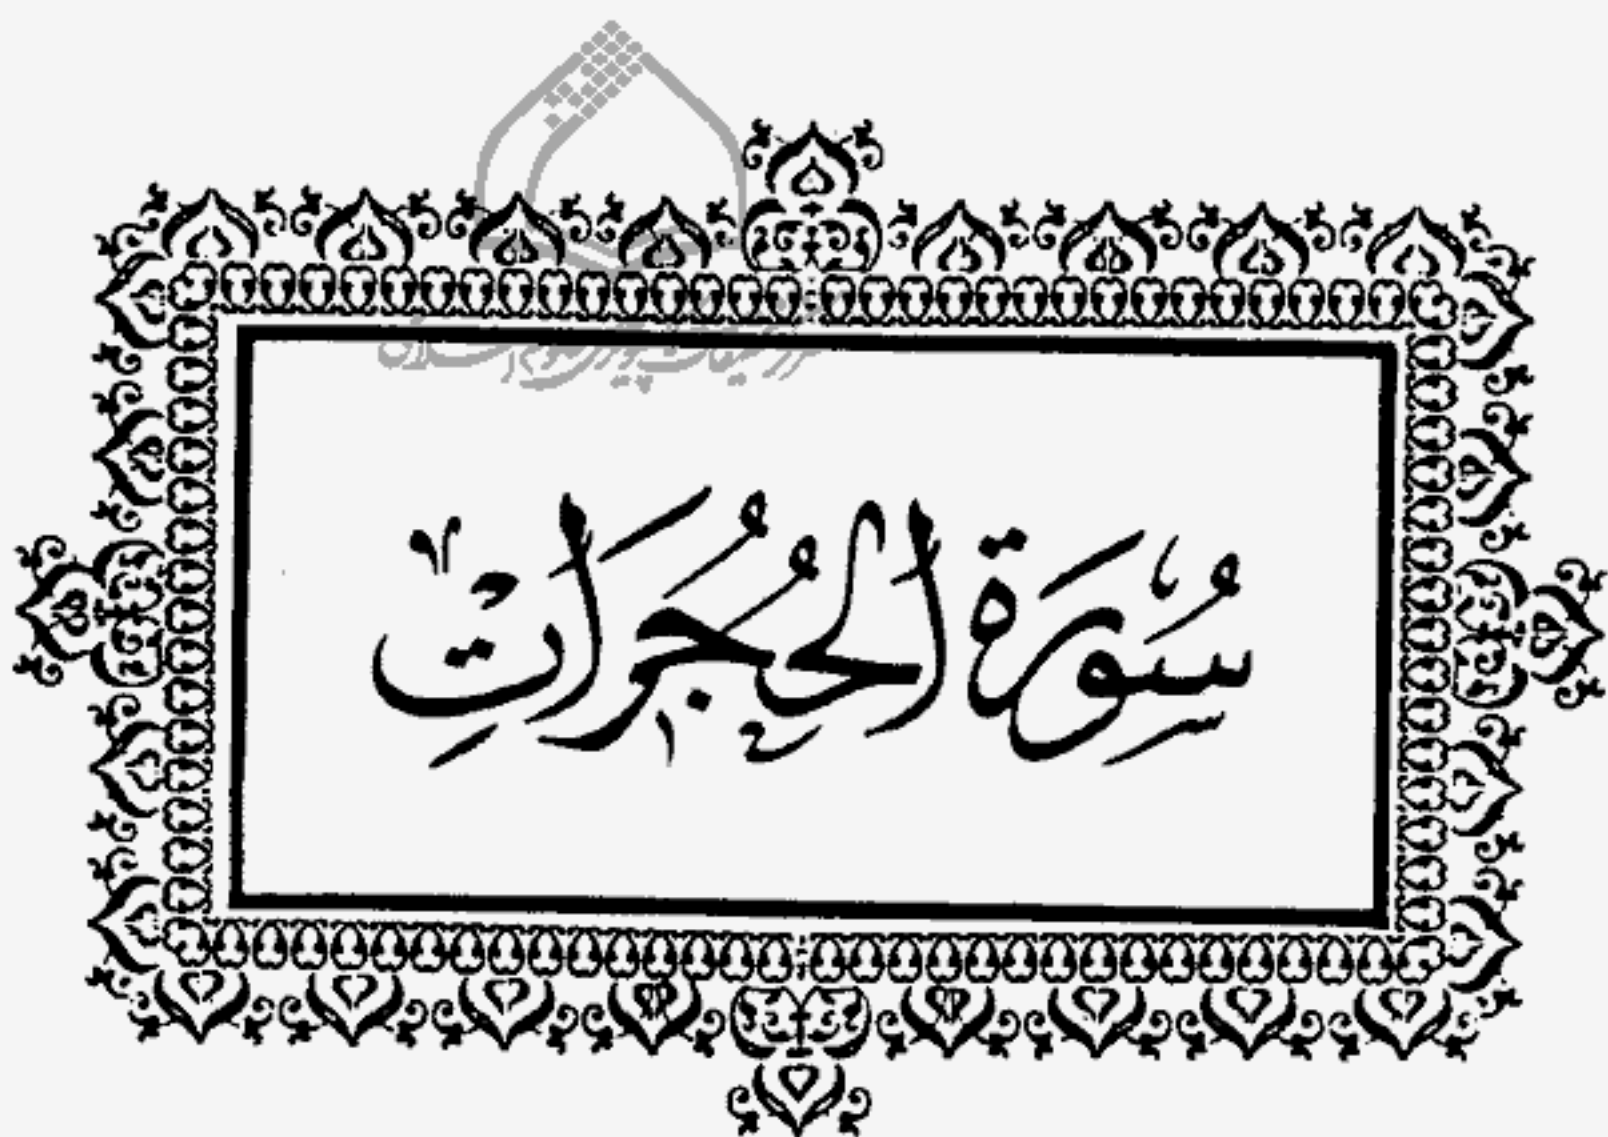 سُورَة الحُجُرَاتِ